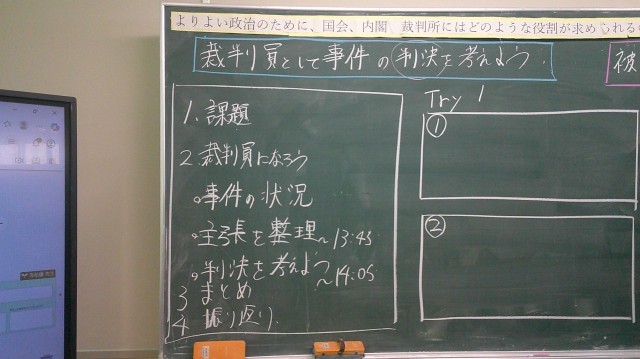 よりよい政治のために、国会、内閣、裁判所にはどのような役割が求められる
裁判員として事件の判決を考えよう
被
1. 課題
2. 裁判員になろう
○事件の状況
○主張を整理~13:45
○判決を考えよう
~14:05
3 まとめ
4 振り返り
Try 1
①
②